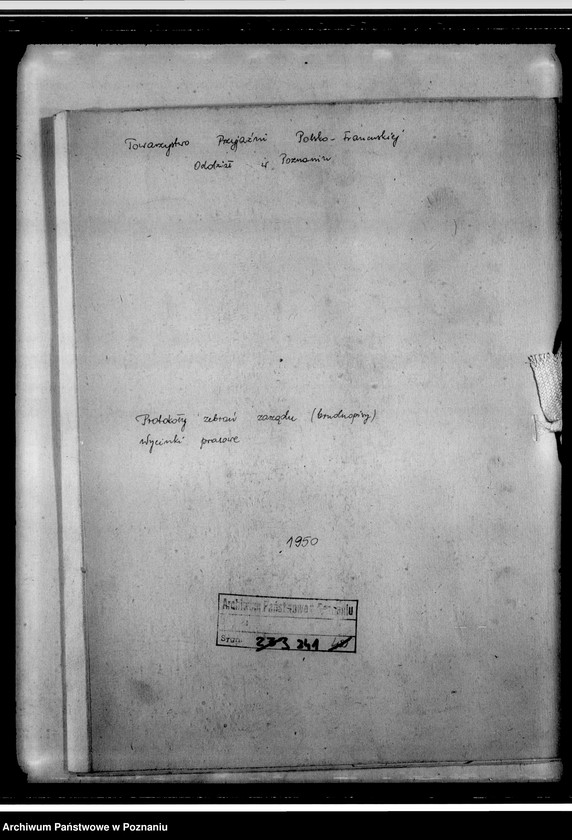 Towarzystwo Przyjaźni Polsko-Francuskiej
Oddział w Poznaniu
Protokoły zebrań zarządu (brudnopisy)
Wycinki prasowe
1950
Archiwum Państwowe w Poznaniu
241
Archiwum Państwowe w Poznaniu